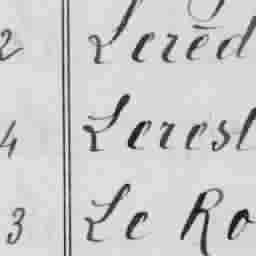 2 Lerēd
4 Lerest
3 Le Ro